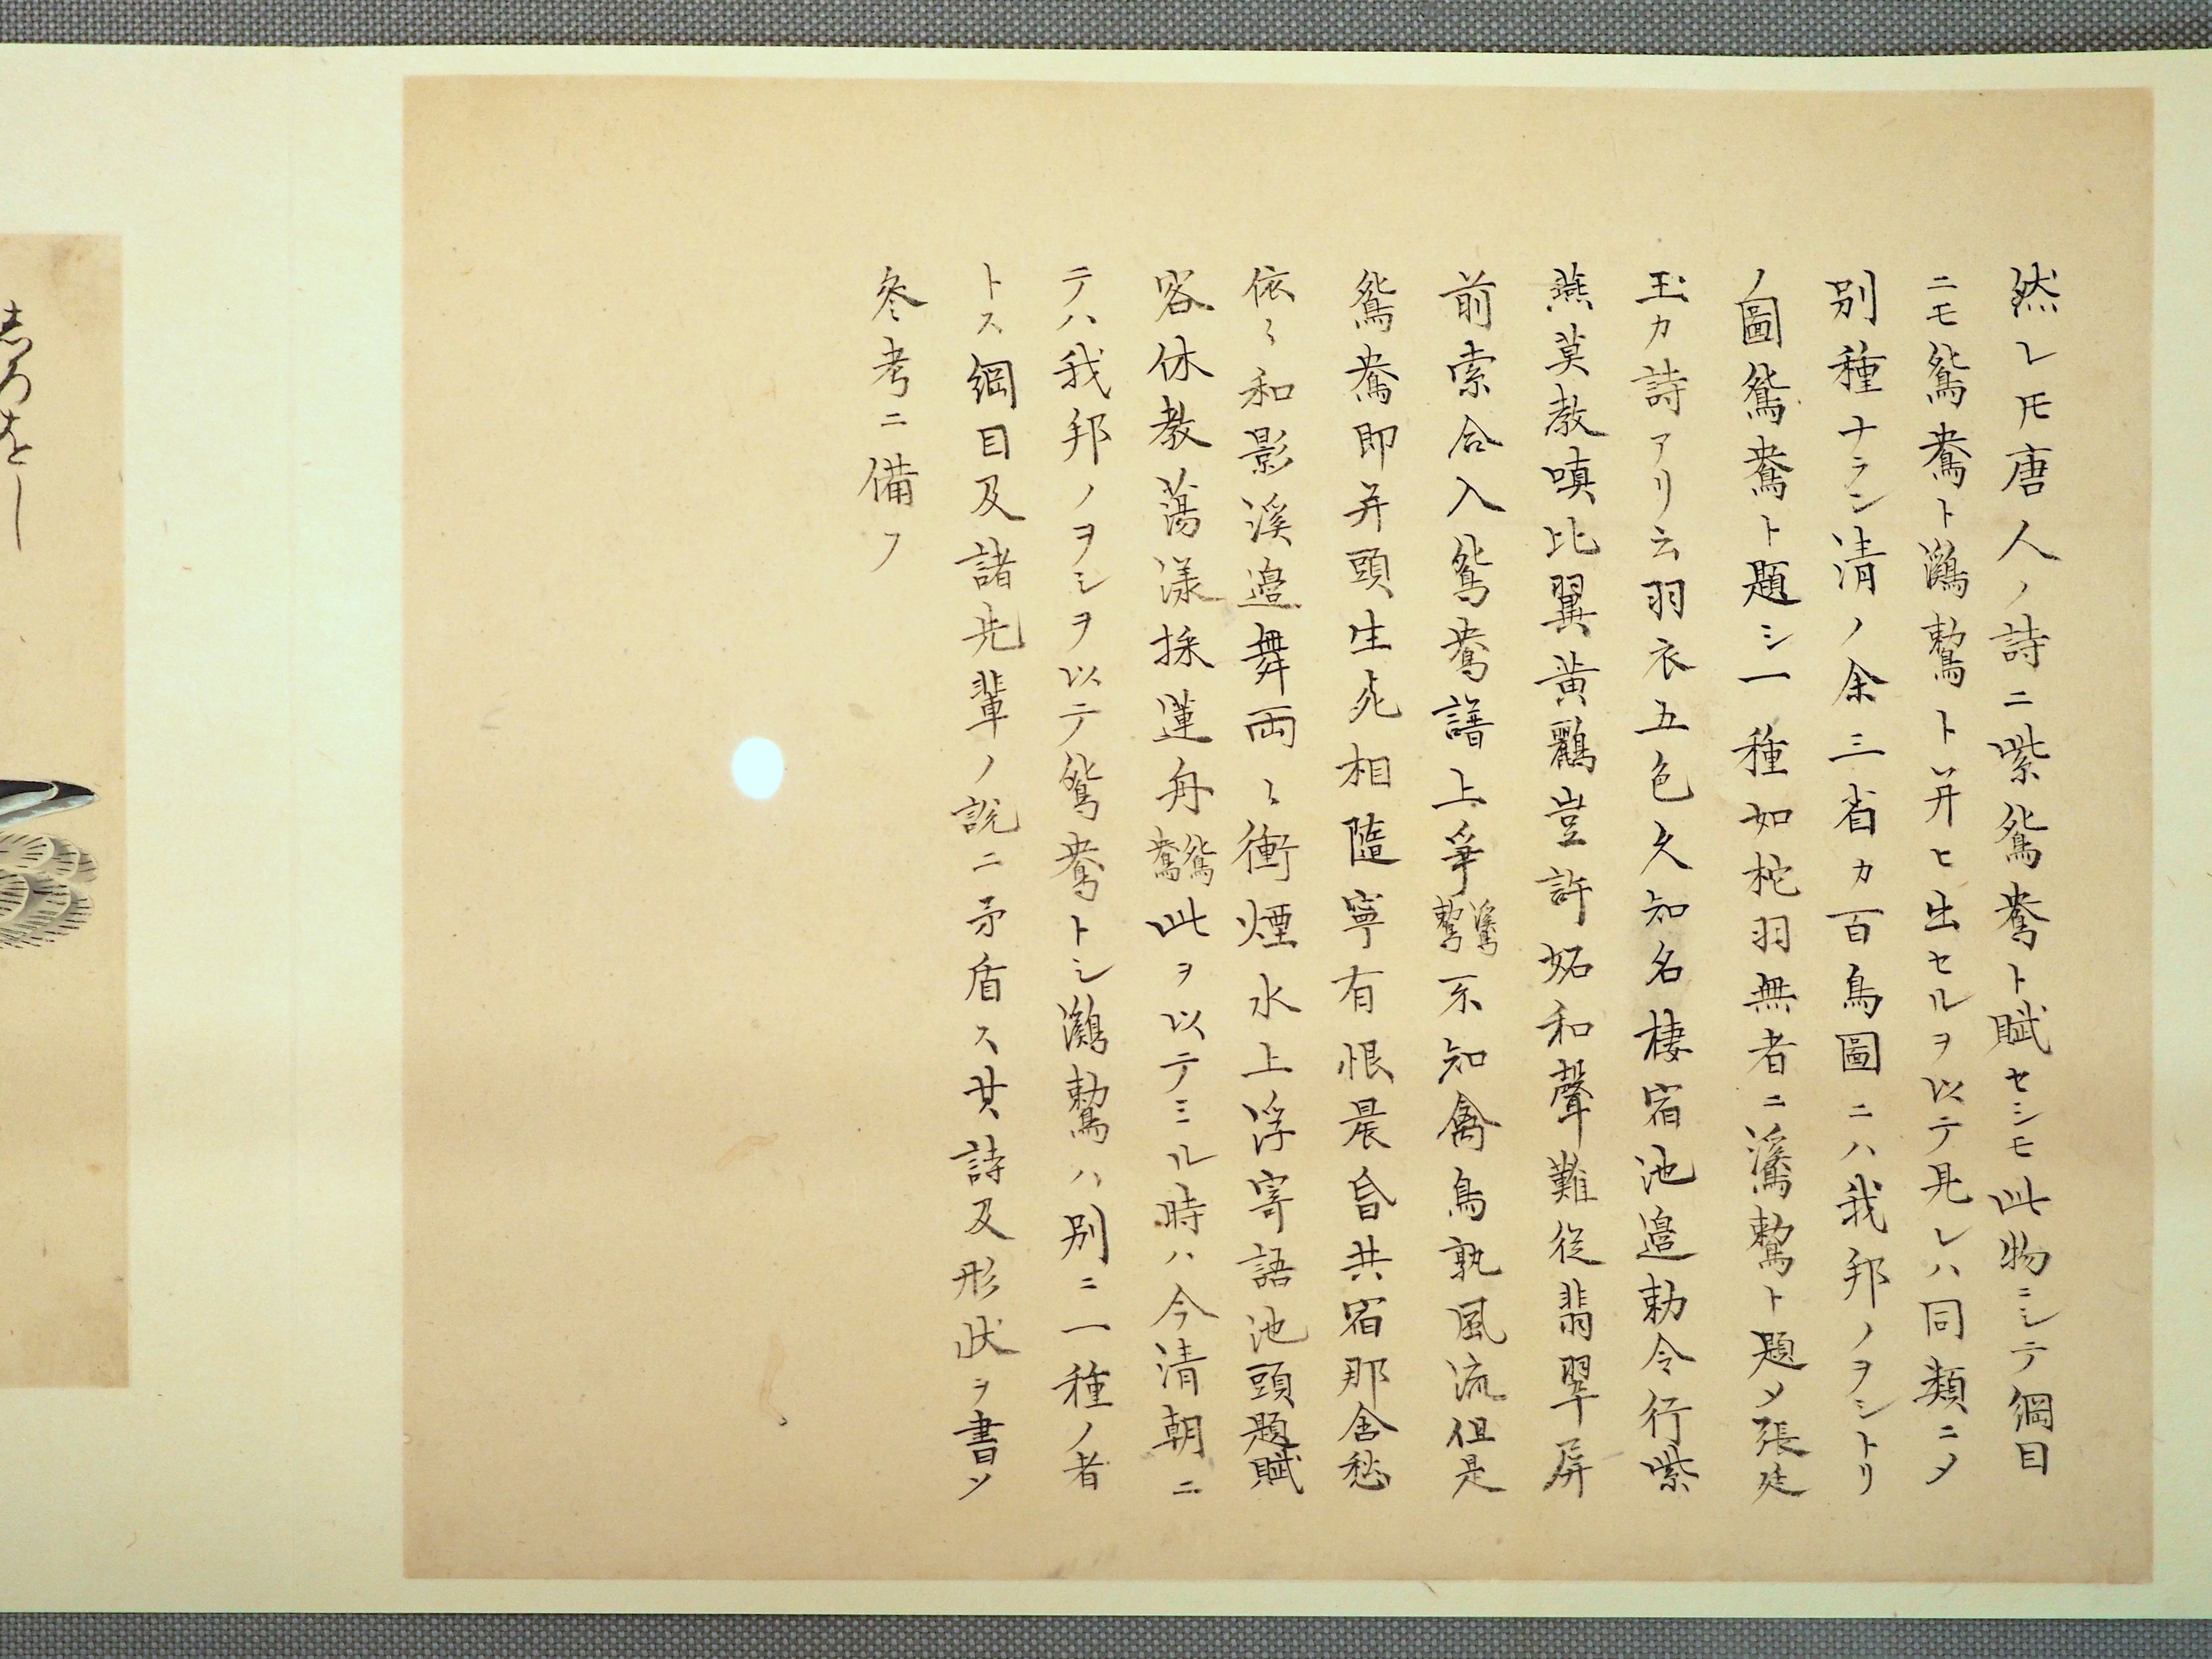 然レ𪜈唐人ノ詩ニ紫鴛鴦ト賦セシモ此物ニシテ綱目
ニモ鴛鴦ト鸂鷘ト并ヒ出セルヲ以テ見レハ同類ニメ
別種ナラン清ノ余三省カ百鳥圖ニハ我邦ノヲシトリ
ノ圖鴛鴦ト題シ一種如柁羽無者ニ鸂鷘ト題メ張廷
玉カ詩アリ云羽衣五色久知名棲宿池邉勅令行紫
燕莫教嗔比翼黄鸝豈許妬和聲難従翡翠屏
前索合入鴛鴦譜上爭鸂鷘不知禽鳥孰風流但是
鴛鴦即并頭生死相隨寧有恨晨昏共宿那舍愁
依〻和影溪邉舞両〻衝煙水上浮寄語池頭題賦
客休教蕩漾採蓮舟鴛鴦此ヲ以テミル時ハ今清朝ニ
テハ我邦ノヲシヲ以テ鴛鴦トシ鸂鷘ハ別ニ一種ノ者
トス綱目及諸先輩ノ説ニ矛盾ス其詩及形状ヲ書ソ
参考ニ備フ
をし